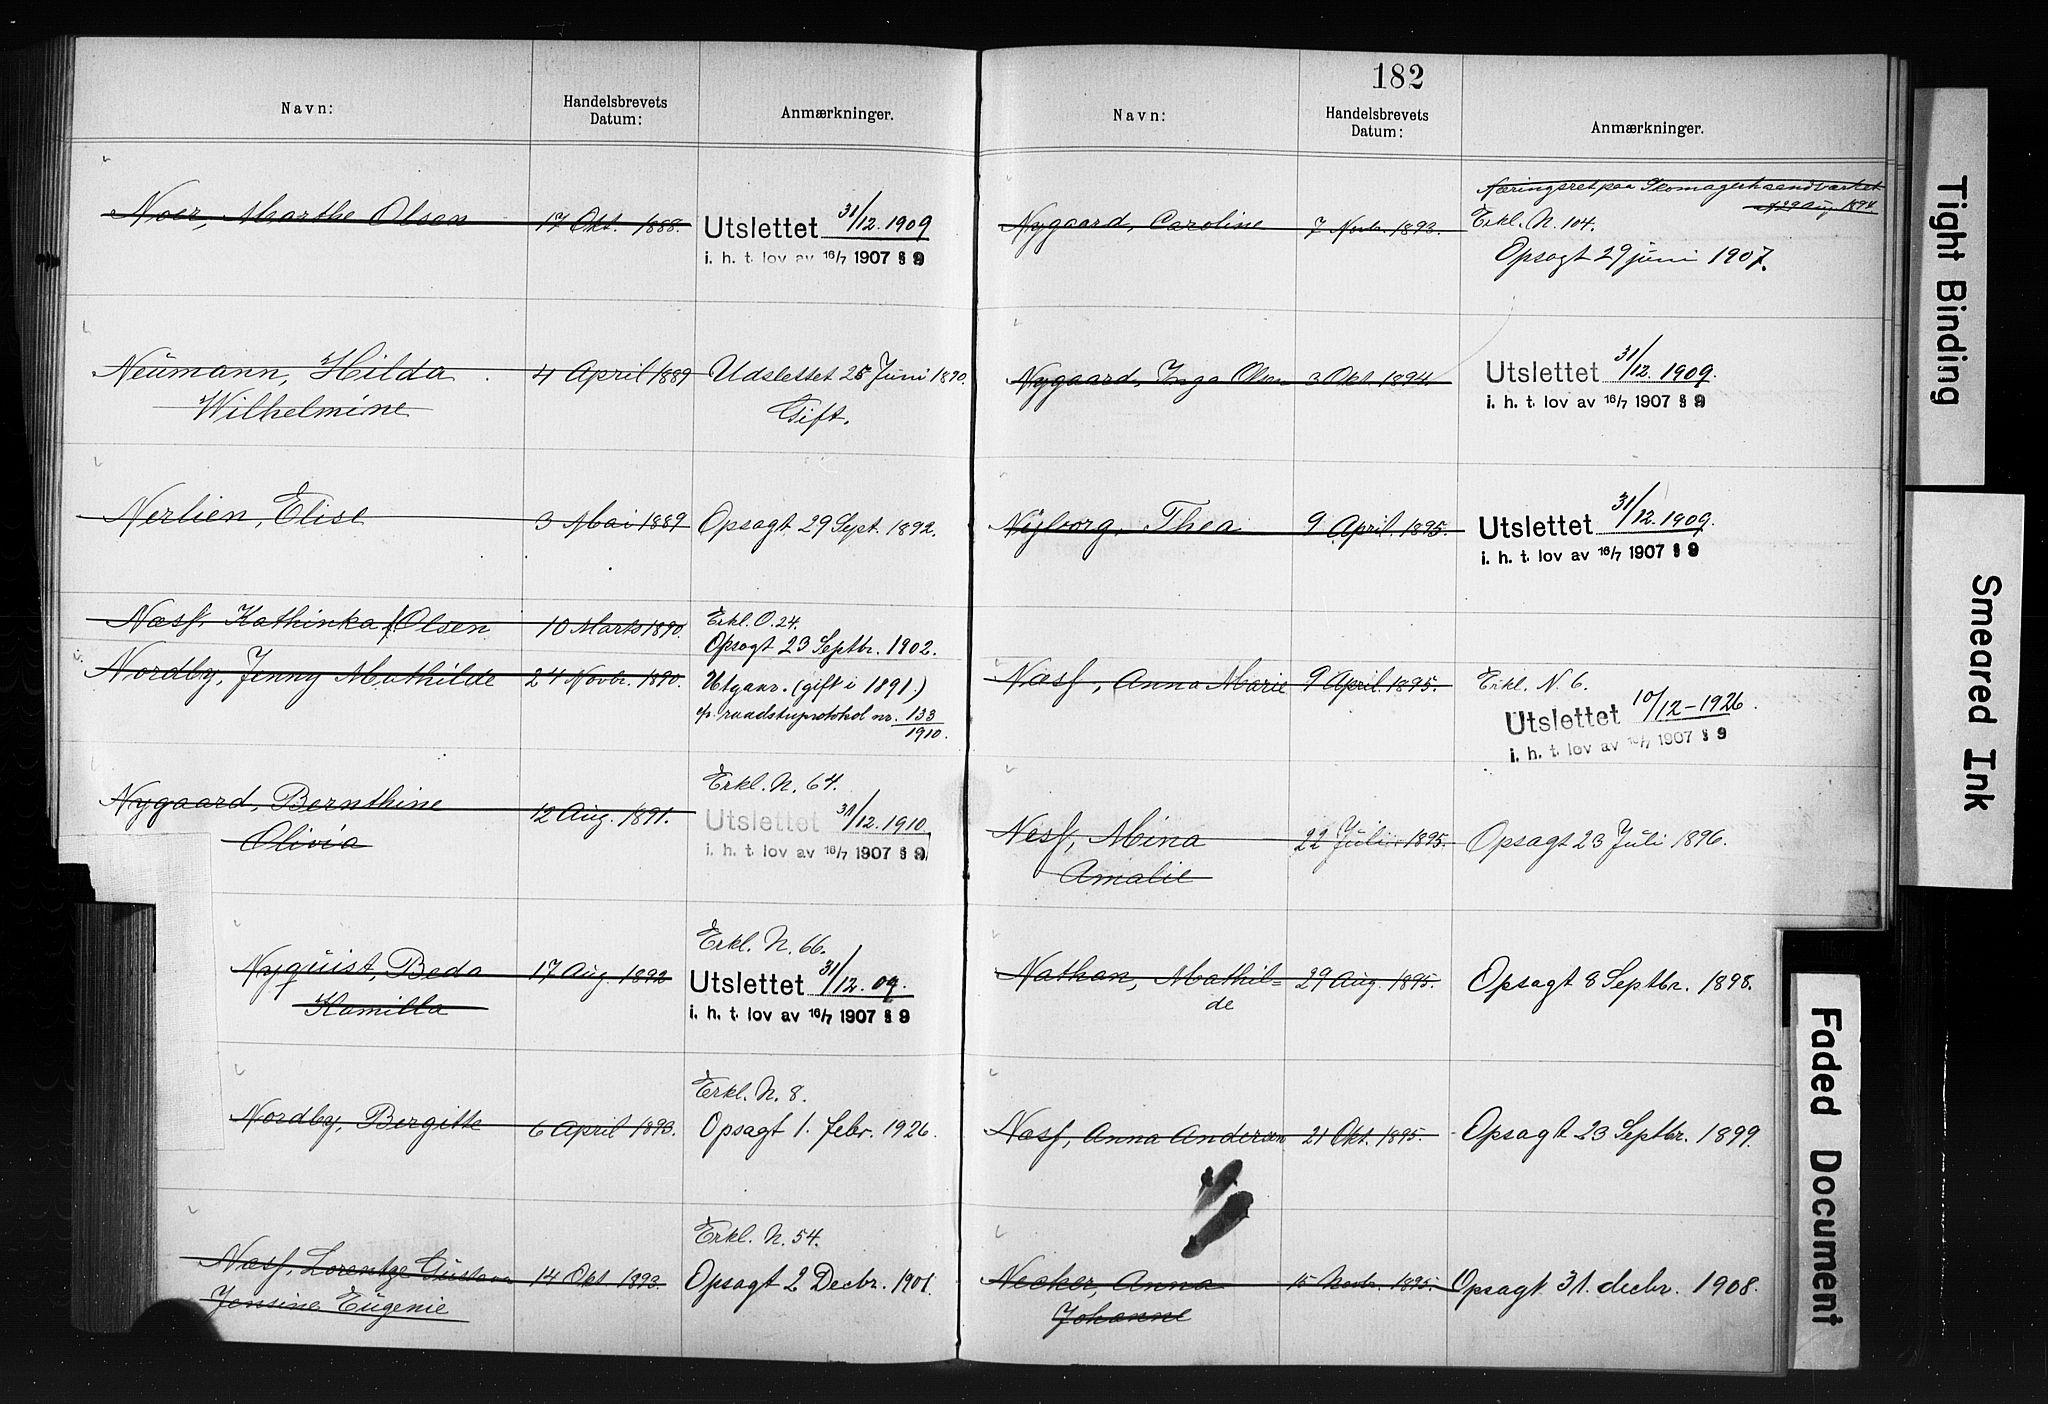 Navn:
Handelsbrevets
Datum:
Anmærkninger.
Noer, Marthe Olsen
17 Okt. 1888.
Utslettet 31/12. 1909
i. h. t. lov av 16/7 1907 § 9
Neümann, Hilda
Wilhelmine
4 April 1889
Udslettet 25 Juni 1890.
Gift.
Nerlien, Elise
3 Mai 1889
Opsagt 29 Sept. 1892.
Næss, Kathinka f. Olsen
10 Marts 1890.
Erkl. O. 24.
Opsagt 23 Septbr. 1902.
Nordby, Jenny Mathilde
24 Novbr. 1890.
Utgaar. (gift i 1891.)
cfr. raadstuprotokol nr. 133
1910.
Nygaard, Bernthine
Olivia
12 Aug. 1891.
Erkl. N. 64.
Utslettet 31/12. 1910
i. h. t. lov av 16/7 1907 § 9
Nyqüist, Beda
Kamilla
17 Aug. 1892
Erkl. N. 66.
Utslettet 31/12. 09.
i. h. t. lov av 16/7 1907 § 9
Nordby, Bergitte
6 April 1893.
Erkl. N. 8.
Opsagt 1. febr. 1926.
Næss, Lorentze Güstava
Jensine Eügenie
14 Okt 1893.
Erkl. N. 54.
Opsagt 2 Decbr. 1901.
182
Navn:
Handelsbrevets
Datum:
Anmærkninger.
Nygaard, Caroline
7 Novbr. 1893.
Næringsret paa Skomagerhaandværket
af 29 Aug. 1894.
Erkl. N. 104.
Opsagt 29 juni 1907.
Nygaard, Inga Olsen
3 Okt. 1894.
Utslettet 31/12. 1909.
i. h. t. lov av 16/7 1907 § 9
Nÿborg, Thea
9 April. 1895.
Utslettet 31/12. 1909.
i. h. t. lov av 16/7 1907 § 9
Næss, Anna Marie
9 April. 1895.
Erkl. N. 6.
Utslettet 10/12 - 1926.
i. h. t. lov av 16/7 1907 § 9
Ness, Mina
Amalie
22 Jüli 1895.
Opsagt 23 Jüli 1896.
Nathan, Mathil=
de
29 Aug. 1895.
Opsagt 8 Septbr. 1898.
Næss, Anna Andersen
21 Okt. 1895.
Opsagt 23 Septbr. 1899.
Necker, Anna
Johanne
15 Novbr. 1895.
Opsagt 31. decbr. 1908.
Tight Binding
Smeared Ink
Faded Document